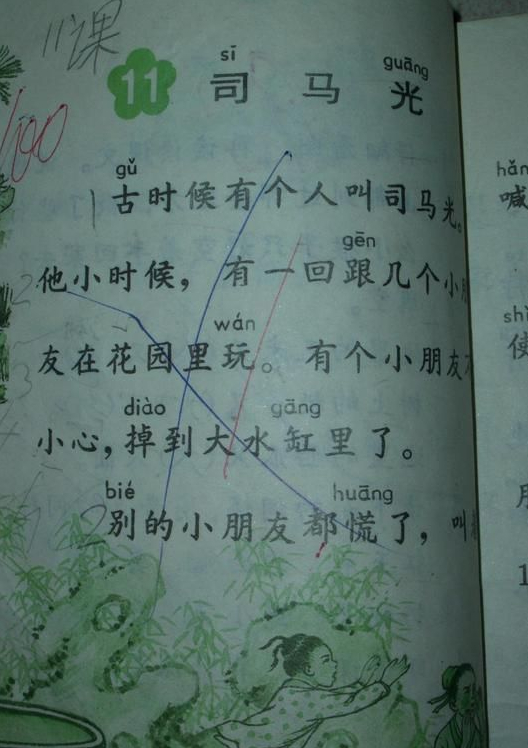 11课
100
sī guāng
11 司马光
gǔ
古时候有个人叫司马光。
gēn
他小时候，有一回跟几个小
wán
友在花园里玩。有个小朋友
diào gāng
小心，掉到大水缸里了。
bié huāng
别的小朋友都慌了，叫
hǎn
喊
shǐ
使